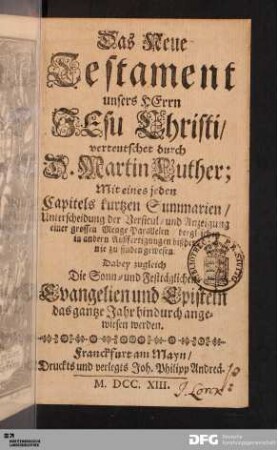 Das Neue
Testament
unsers HErrn
JEsu Christi/
verteutschet durch
D. Martin Luther;
Mit eines jeden
Capitels kurtzen Summarien/
Unterscheidung der Versicul/ und Anzeigung
einer grossen Menge Parallelen/
in andern
nie zu finden gewesen
Dabey zugleich
Die Sonn- und Festtäglichen
Evangelien und Episteln
das gantze Jahr hindurch ange-
wiesen werden.
Franckfurt am Mayn/
Druckts und verlegts Joh. Philipp Andreä.
M. DCC. XIII.
DFG